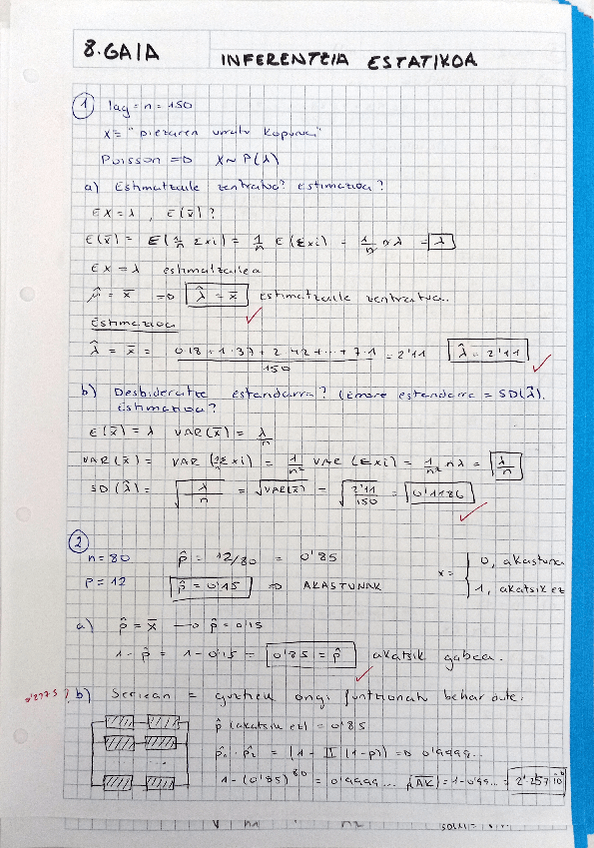 8. GAIA
INFERENTZIA ESTATIKOA
1 lag = n = 150
X = "piezaren urratu kopurua"
Poisson => X ~ P(λ)
a) Estimatzaile zentratua? estimazioa?
EX = λ , E(x̄)?
E(x̄) = E(1/n Σxi) = 1/n E(Σxi) = 1/n nλ = λ
EX = λ estimatzailea
μ̂ = x̄ => λ̂ = x̄ estimatzaile zentratua..
Estimazioa
λ̂ = x̄ = 0·18 + 1·37 + 2·42 + ... + 7·1 / 150 = 2'11 λ̂ = 2'11
b) Desbideratze estandarra? (Errore estandarra = SD(λ̂).
Estimazioa?
E(x̄) = λ VAR(x̄) = λ/n
VAR(x̄) = VAR(1/n Σxi) = 1/n² VAR(Σxi) = 1/n² nλ = λ/n
SD(λ̂) = √(λ/n) = √VAR(x̄) = √(2'11/150) = 0'1186
2
n = 80 p̂ = 12/80 = 0'85 x = { 0, akastuna
p = 12 p̂ = 0'15 => AKASTUNAK 1, akatsik ez
a) p̂ = x̄ → p̂ = 0'15
1 - p̂ = 1 - 0'15 = 0'85 = p̂ akatsik gabea.
b) Seriean = guztiek ongi funtzionatu behar dute.
p̂ (akatsik ez) = 0'85
p̂₁ · p̂₂ = (1 - Π (1-p)) => 0'9999...
1 - (0'85)^80 = 0'9999... = 1 - 0'99... = 2'257